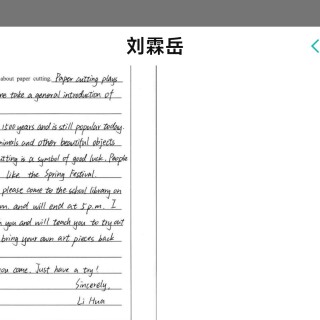 刘霖岳
about paper cutting. Paper cutting plays
me take a general introduction of
1500 years and is still popular today.
nimals and other beautiful objects
utting is a symbol of good luck. People
like the Spring Festival.
please come to the school library on
m. and will end at 5 p.m. I
h you and will teach you to try out
bring your own art pieces back
you come. Just have a try!
Sincerely,
Li Hua